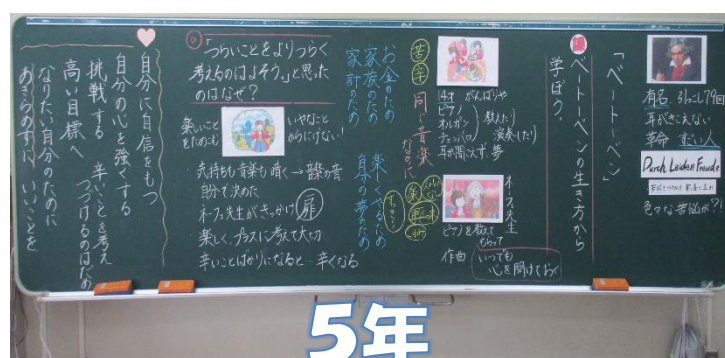 「ベートーベン」
有名 引っこし79回
耳がきこえない
革命 すごい人
Durch Leiden Freude
色々な苦悩が?!
課 ベートーベンの生き方から
学ぼう。
14才 がんばりや
ピアノ
オルガン
チェンバロ
教えたり
演奏したり
耳が聞こえず 夢
ネーフェ先生
ピアノを教えて
もらって
作曲
いつでも
心を開けておく
苦
同じ音楽
なのに
楽
お金のため
家族のため
家計のため
楽しくやるため
自分の夢のため
「つらいことをよりつらく
考えるのはよそう。」と思った
のはなぜ?
楽しいこと
いやなこと
からにげない!
・気持ちも音楽も暗く→音楽の音
自分で決めた
ネーフェ先生がきっかけ 扉
楽しく、プラスに考えて大切
辛いことばかりになると…辛くなる
自分に自信をもつ
自分の心を強くする
挑戦する 辛いことを考え
高い目標へ つづけるのはだめ
なりたい自分のために
あきらめずに、いいことを
5年